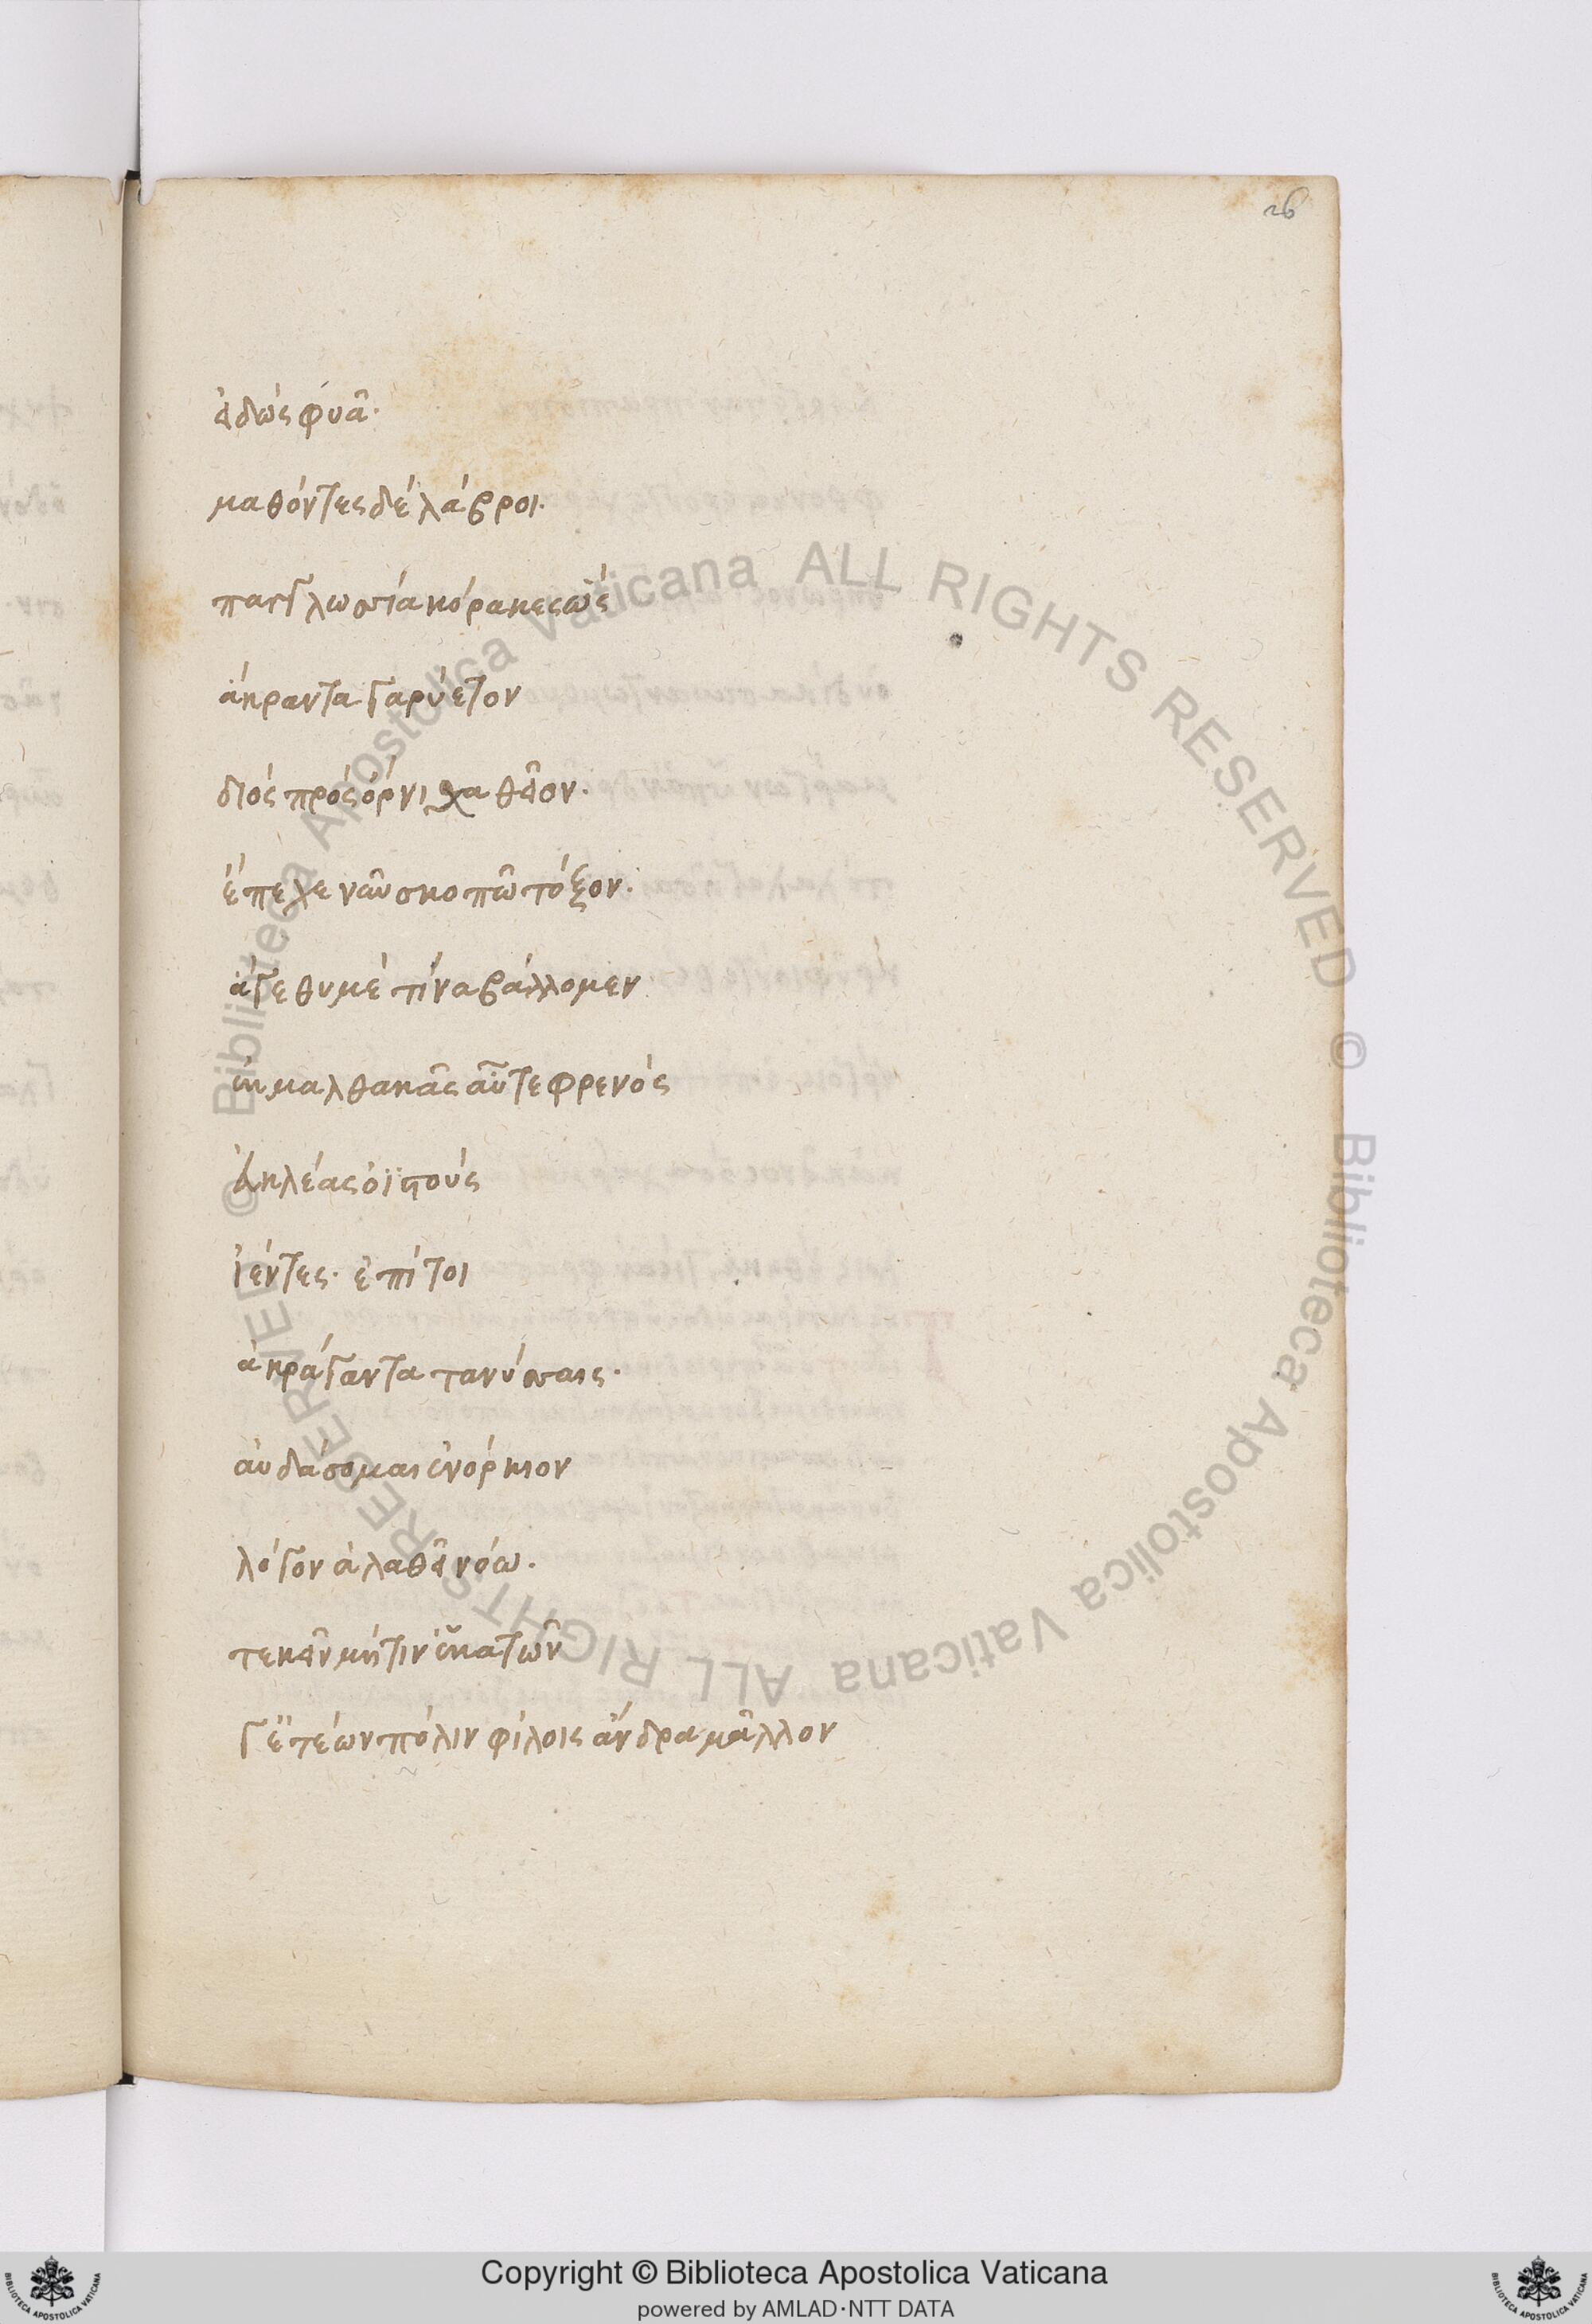 26
εἰδὼς φυᾶ·
μαθόντες δὲ λάβροι·
παγγλωσία κόρακες ὡς
ἄκραντα γαρύετον
διὸς πρὸς ὄρνιχα θεῖον·
ἔπεχε νῦν σκοπῶ τόξον·
ἄγε θυμὲ τίνα βάλλομεν
ἐκ μαλθακᾶς αὖτε φρενὸς
εὐκλέας ὀϊστοὺς
ἱέντες· ἐπί τοι
ἀκράγαντα τανύσαις·
αὐδάσομαι ἐνόρκιον
λόγον ἀλαθεῖ νόω·
τεκεῖν μή τιν ἑκατῶν
γε ἐτέων πόλιν φίλοις ἄνδρα μᾶλλον
© Biblioteca Apostolica Vaticana ALL RIGHTS RESERVED © Biblioteca Apostolica Vaticana ALL RIGHTS RESERVED
Copyright © Biblioteca Apostolica Vaticana
powered by AMLAD·NTT DATA